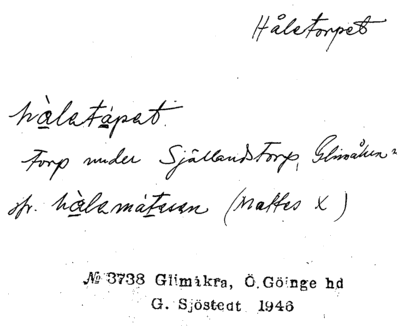 Hålatorpet
hàlatápat.
torp under Själlandstorp, Glimåkra=
jfr. hàlamátsen (Mattes X)
№ 3738 Glimåkra, Ö. Göinge hd
G. Sjöstedt 1946